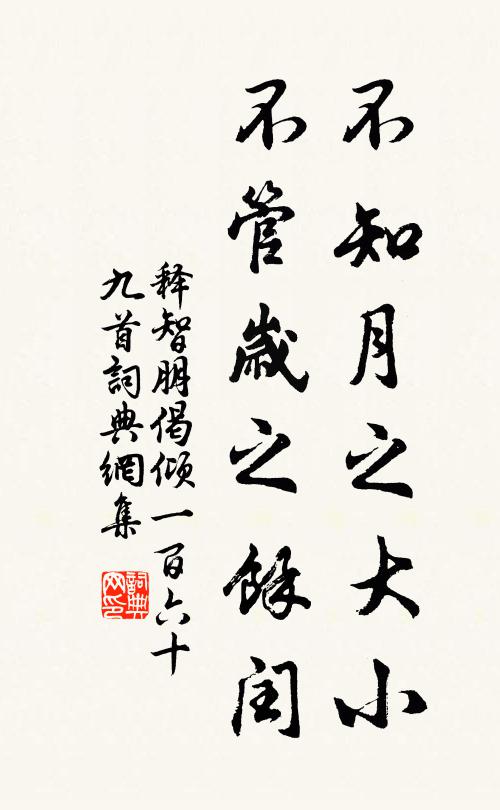 不知月之大小
不管歲之餘閏
释智朋偈傾一百六十
九首詞典網集
詞典网印